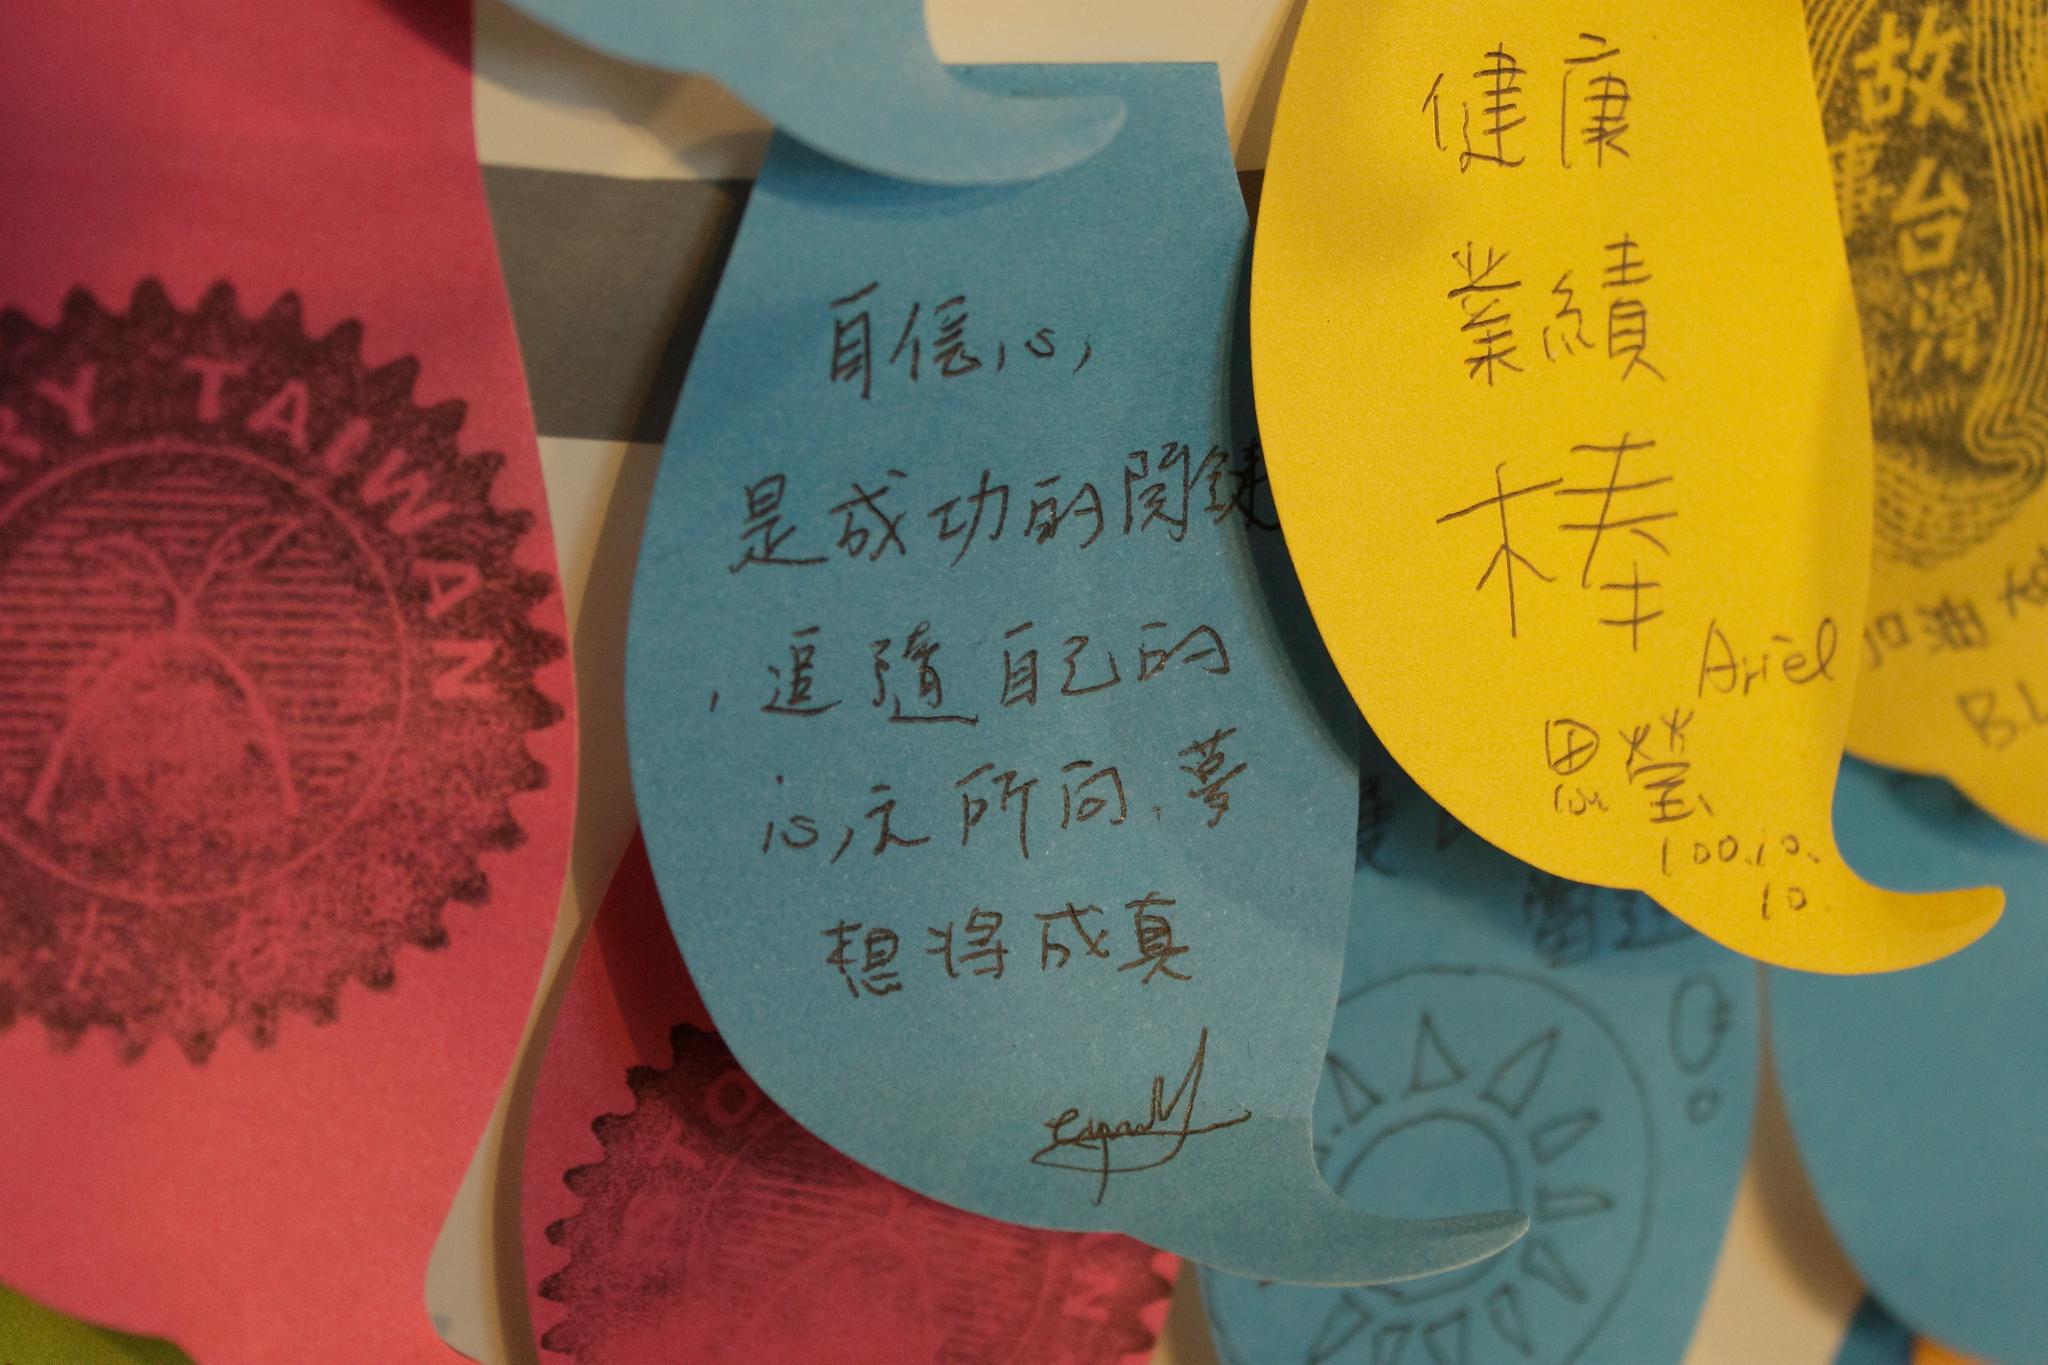 TAIWAN
自信心,
是成功的関鍵
，追隨自己的
心之所向，夢
想將成真
健康
業績
棒
Ariel
思瑩
100.10.
10.
故
台
灣
加油
B.L